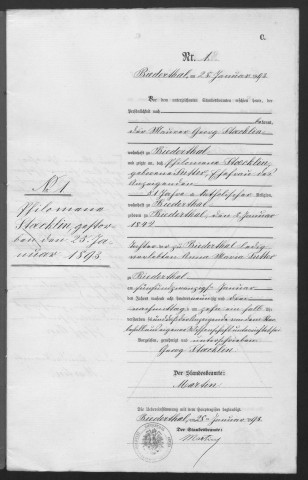 C.
Nr. 1.
Biederthal, am 26. Januar 1893.
Vor dem unterzeichneten Standesbeamten erschien heute, der
Persönlichkeit nach
bekannt,
der Maurer Georg Stocklin
wohnhaft zu Biederthal
und zeigte an, daß Philomena Stocklin,
geborene Sutter, Ehefrau des
Anzeigenden
51 Jahre alt, katholischer Religion,
wohnhaft zu Biederthal
geboren zu Biederthal, den 1. Januar
1842
Tochter zu Biederthal ledig
Anna Maria Sutter
zu Biederthal
am fünfundzwanzigsten Januar
des Jahres tausend achthundert neunzig und drei
nachmittags um zehn ein halb
Vorgelesen, genehmigt und unterschrieben
Georg Stocklin
Der Standesbeamte:
Martin
Die Uebereinstimmung mit dem Hauptregister beglaubigt
Biederthal, am 26. Januar 1893.
Der Standesbeamte:
No 1
Philomena
Stocklin, gestor-
ben den 25. Ja-
nuar 1893